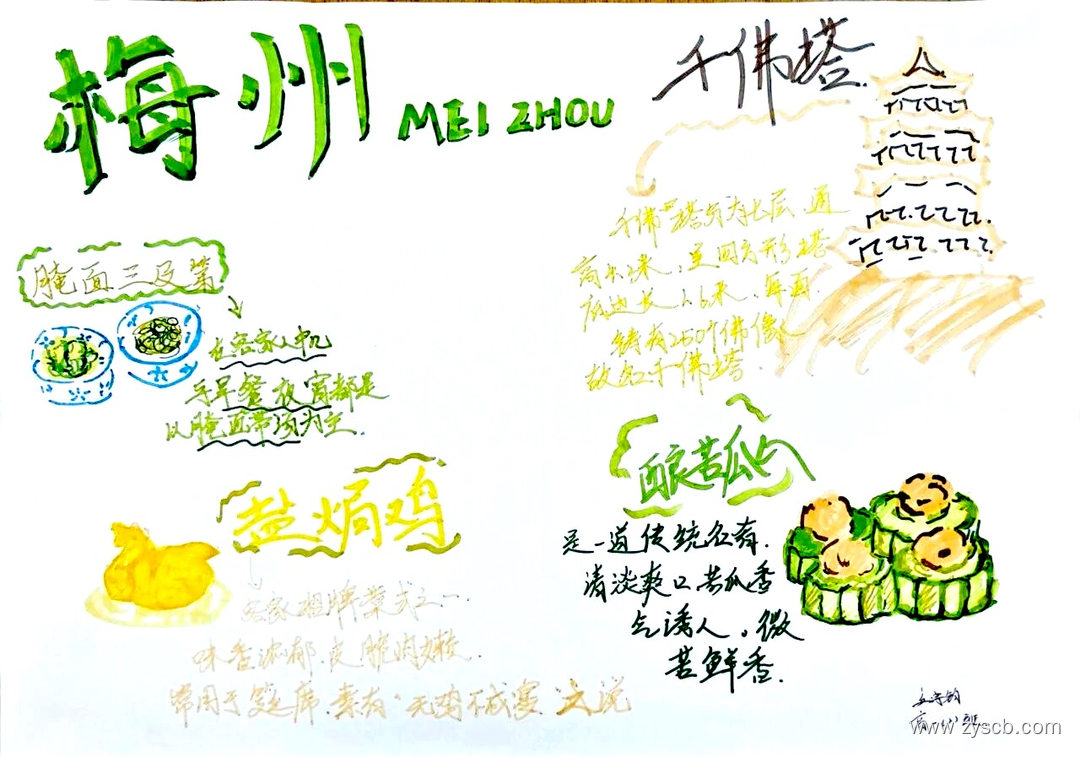 梅州 MEI ZHOU
千佛塔
千佛塔共为七层,通
高
米,呈四方形塔
底边长1.6米,每面
铸有250个佛像
故名千佛塔.
腌面三及第
在客家人中几
乎早餐夜宵都是
以腌面带汤为主.
盐焗鸡
客家招牌菜式之一.
味香浓郁.皮脆肉嫩.
常用于筵席.素有"无鸡不成宴"之说
酿苦瓜
是一道传统名肴.
清淡爽口苦瓜香
气诱人。微
苦鲜香.
www.zyscb.com